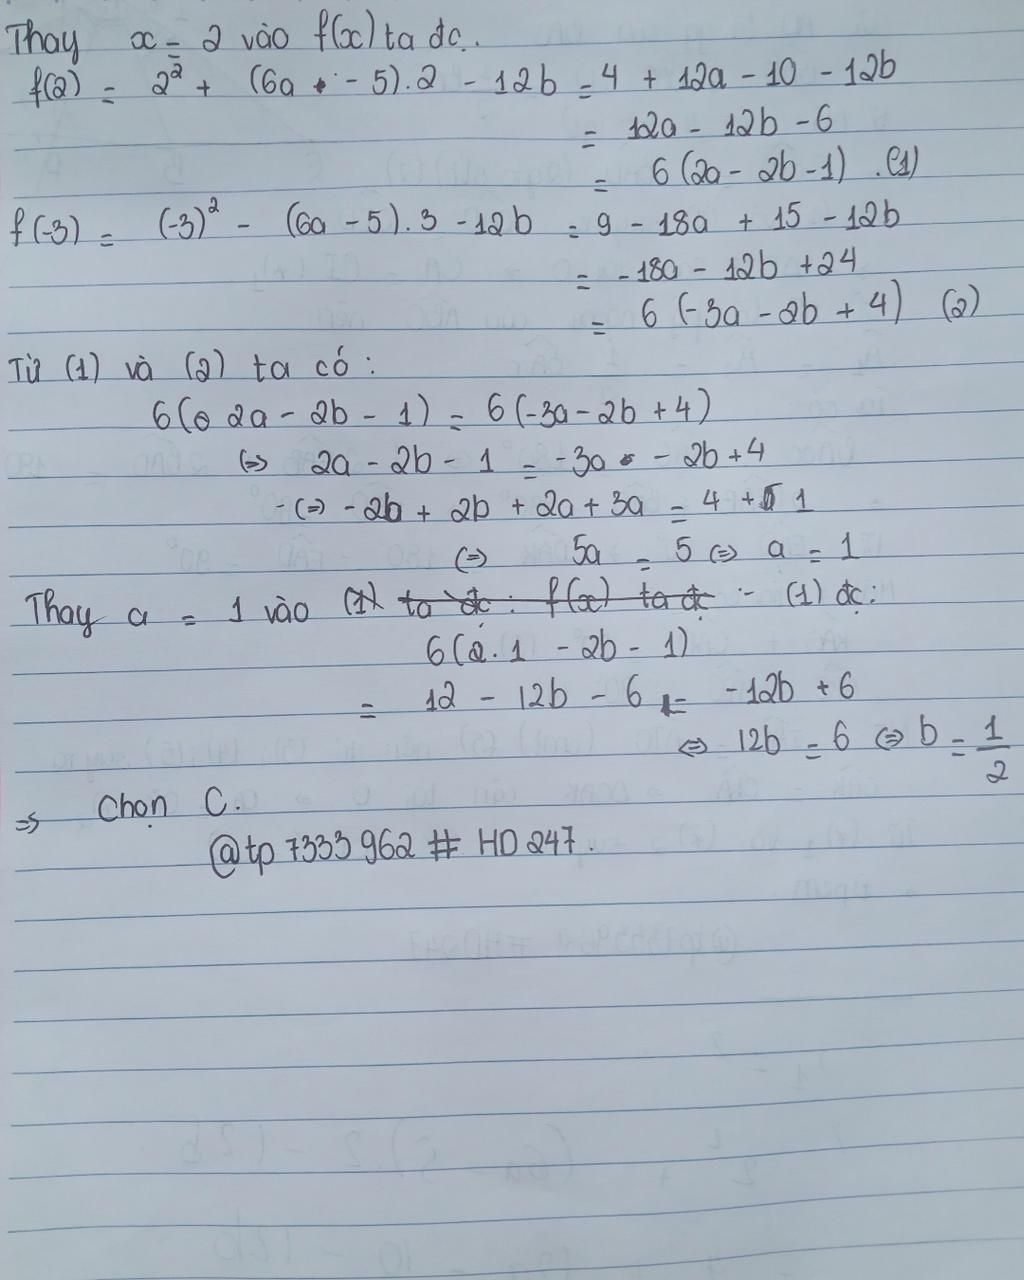 Thay x = 2 vào f(x) ta đc.
f(2) = 2² + (6a - 5).2 - 12b = 4 + 12a - 10 - 12b
= 12a - 12b - 6
= 6(2a - 2b - 1) (1)
f(-3) = (-3)² - (6a - 5).3 - 12b = 9 - 18a + 15 - 12b
= -18a - 12b + 24
= 6(-3a - 2b + 4) (2)
Từ (1) và (2) ta có:
6(2a - 2b - 1) = 6(-3a - 2b + 4)
(=) 2a - 2b - 1 = -3a - 2b + 4
(=) -2b + 2b + 2a + 3a = 4 + 1
(=) 5a = 5 (=) a = 1
Thay a = 1 vào (1) ta đc: f(x) ta đc (1) đc:
6(2.1 - 2b - 1)
= 12 - 12b - 6 = -12b + 6
(=) 12b = 6 (=) b = 1/2
=> Chọn C.
@tp7333962 # HD247.